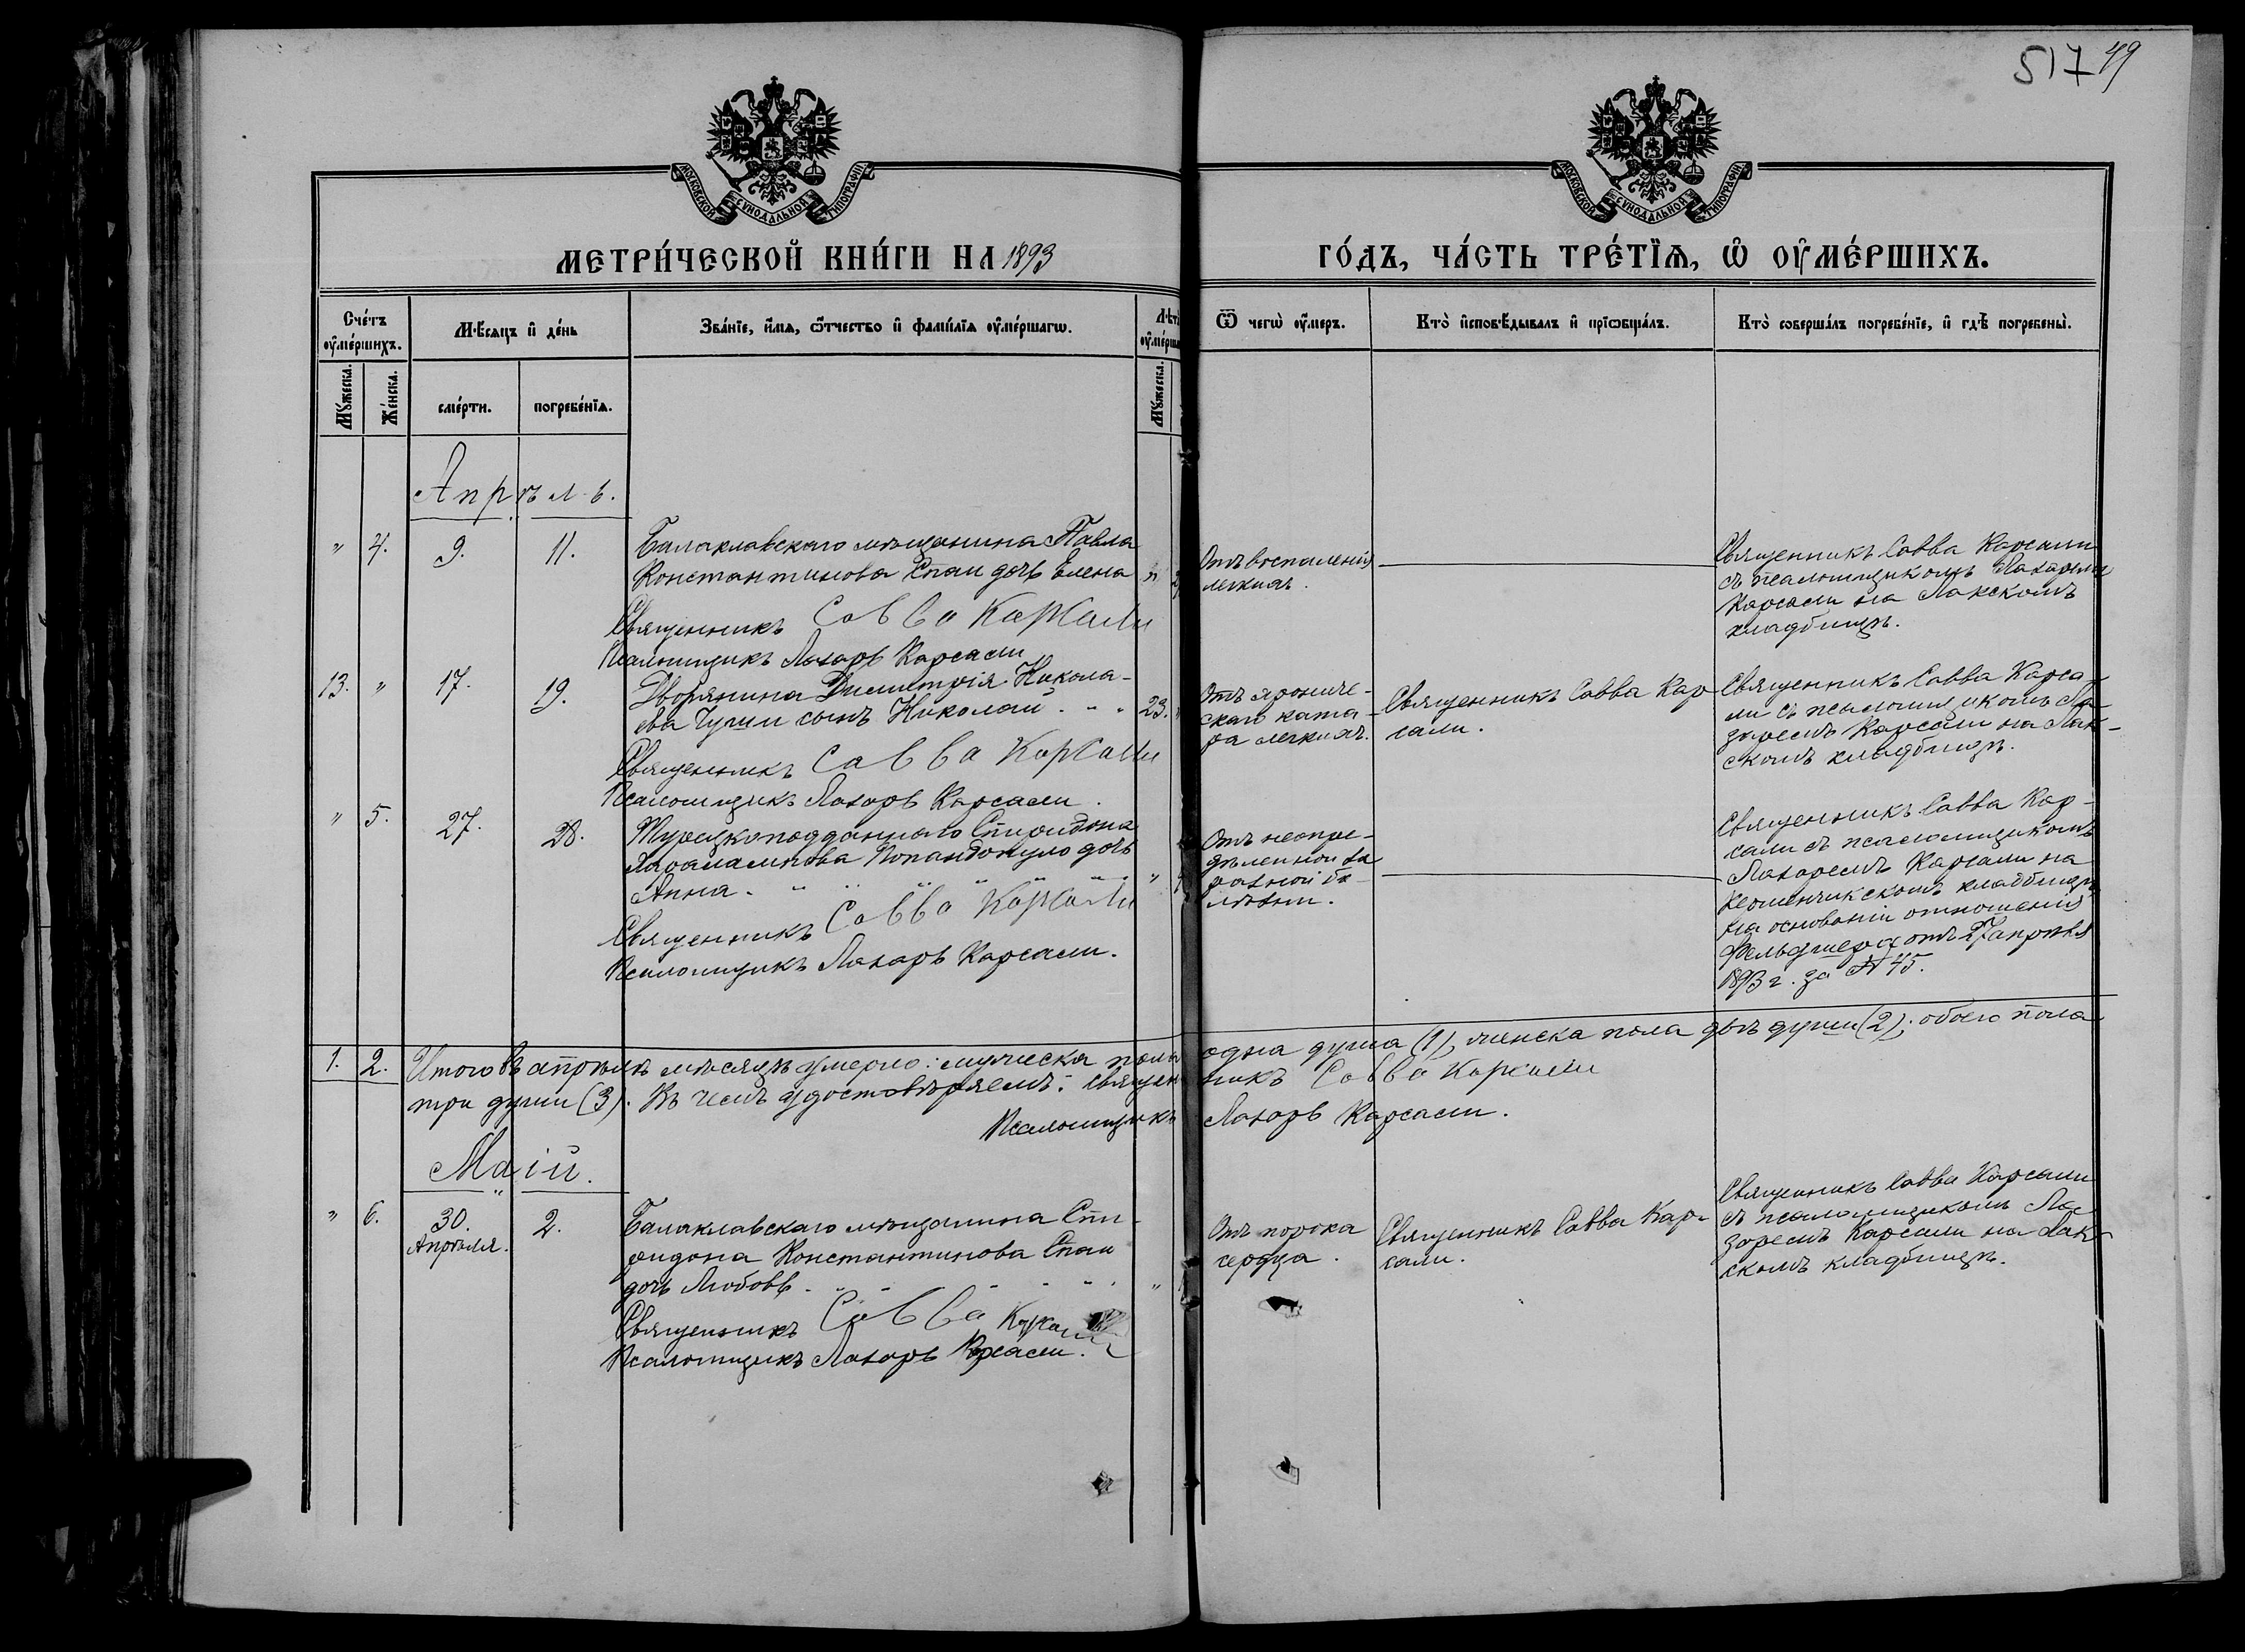 517 49
МОСКОВСКОЙ СѴНОДАЛЬНОЙ ТИПОГРАФІИ
МОСКОВСКОЙ СѴНОДАЛЬНОЙ ТИПОГРАФІИ
МЕТРИ́ЧЕСКОЙ КНИ́ГИ НА 1893
ГО́ДЪ, ЧА́СТЬ ТРЕ́ТІѦ, Ѡ҆ ОУ҆МЕ́РШИХЪ.
Сче́тъ оу҆ме́ршихъ.
Мѣ́сяцъ и҆ де́нь
Зва́нїе, и҆́мя, ѻ҆́тчество и҆ фами́лїя оу҆ме́ршагѡ.
Ѿ чегѡ̀ оу҆́меръ.
Кто̀ и҆сповѣ́дывалъ и҆ прїѡбща́лъ.
Кто̀ соверша́лъ погребе́нїе, и҆ гдѣ̀ погребены̀.
Мꙋ́жеска.
Же́нска.
сме́рти.
погребе́нїѧ.
Мꙋ́жеска.
Апрѣль.
" 4. 9. 11.
Балаклавскаго мѣщанина Павла
Константинова Спаи дочь Елена
Священникъ Савва Карсали
Псаломщикъ Лазарь Карсали
Отъ воспаленія
легкихъ.
Священникъ Савва Карсали
съ псаломщикомъ Лазаремъ
Карсали на Лакскомъ
кладбищѣ.
13. " 17. 19.
Дворянина Димитрія Никола-
ева Чуши сынъ Николай 23.
Священникъ Савва Карсали
Псаломщикъ Лазарь Карсали.
Отъ хрониче-
скаго ката-
ра легкихъ.
Священникъ Савва Кар-
сали.
Священникъ Савва Карса-
ли съ псаломщикомъ Ла-
заремъ Карсали на Лак-
скомъ кладбищѣ.
" 5. 27. 28.
Турецкоподданнаго Спиридона
Харалампова Попандопуло дочь
Анна.
Священникъ Савва Карсали
Псаломщикъ Лазарь Карсали.
Отъ неопре-
дѣленной за-
разной бо-
лѣзни.
Священникъ Савва Кар-
сали съ псаломщикомъ
Лазаремъ Карсали на
кладбищѣ
на основаніи отношенія
Фельдшера отъ 27 апрѣля
1893 г. за № 45.
1. 2. Итого въ апрѣлѣ мѣсяцѣ умерло: мужеска пола одна душа (1), женска пола двѣ души (2); обоего пола
три души (3). Въ чемъ удостовѣряемъ: Священникъ Савва Карсали
Псаломщикъ Лазарь Карсали.
Маій.
" 6. 30. Апрѣля. 2.
Балаклавскаго мѣщанина Спи-
ридона Константинова Спаи
дочь Любовь.
Священникъ Савва Карсали
Псаломщикъ Лазарь Карсали.
Отъ порока
сердца.
Священникъ Савва Кар-
сали.
Священникъ Савва Карсали
съ псаломщикомъ Ла-
заремъ Карсали на Лак-
скомъ кладбищѣ.